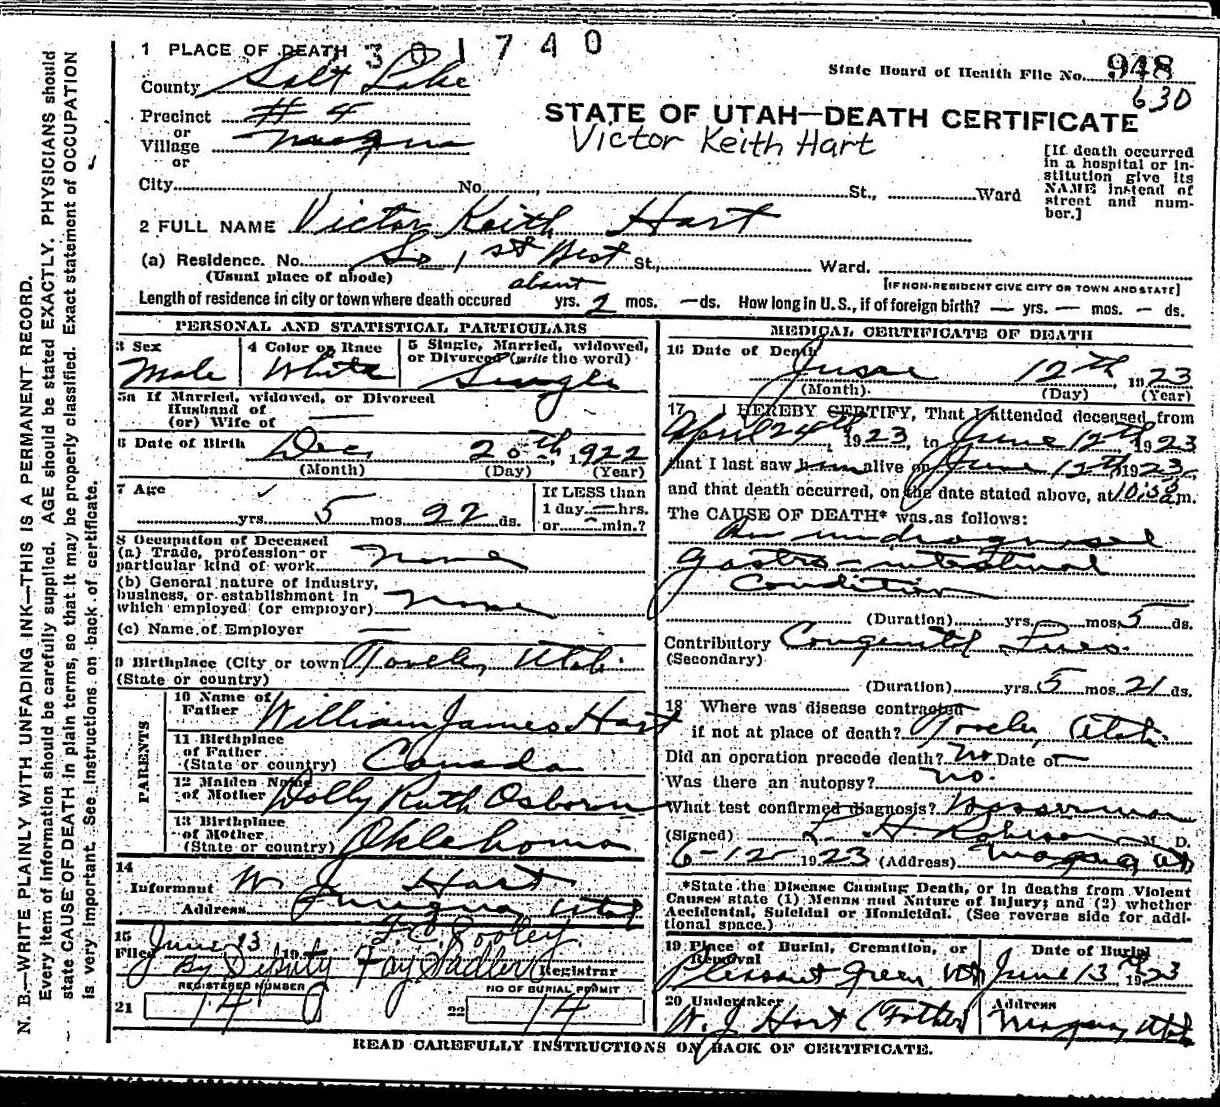 1 PLACE OF DEATH 301740
State Board of Health File No. 948
630
County Salt Lake
Precinct #4
or
Village Magna
or
STATE OF UTAH—DEATH CERTIFICATE
Victor Keith Hart
[If death occurred in a hospital or institution give its NAME instead of street and number.]
City No. St., Ward
2 FULL NAME Victor Keith Hart
(a) Residence. No. So 1st West St., Ward.
(Usual place of abode)
[IF NON-RESIDENT GIVE CITY OR TOWN AND STATE]
Length of residence in city or town where death occured about yrs. 2 mos. — ds. How long in U.S., if of foreign birth? — yrs. — mos. — ds.
PERSONAL AND STATISTICAL PARTICULARS
3 Sex Male
4 Color or Race White
5 Single, Married, widowed, or Divorced (write the word) Single
5a If Married, widowed, or Divorced
Husband of
(or) Wife of —
6 Date of Birth Dec. 20th, 1922
(Month) (Day) (Year)
7 Age yrs. 5 mos. 22 ds.
If LESS than
1 day — hrs.
or — min.?
8 Occupation of Deceased
(a) Trade, profession or
particular kind of work None
(b) General nature of industry,
business, or establishment in
which employed (or employer) None
(c) Name of Employer —
9 Birthplace (City or town) Tooele, Utah.
(State or country)
PARENTS
10 Name of
Father William James Hart
11 Birthplace
of Father
(State or country) Canada
12 Maiden Name
of Mother Dolly Ruth Osborn
13 Birthplace
of Mother
(State or country) Oklahoma
14
Informant W J Hart
Address Magna, Utah
15
Filed June 13 19 F.C. Sooley
By Deputy Fay Sadler Registrar
REGISTERED NUMBER
21 14
NO OF BURIAL PERMIT
22 14
MEDICAL CERTIFICATE OF DEATH
16 Date of Death June 12th, 1923
(Month). (Day) (Year)
17 I HEREBY CERTIFY, That I attended deceased from
April 24th, 1923, to June 12th 1923
that I last saw him alive on June 12th 1923,
and that death occurred, on the date stated above, at 10:30 a.m.
The CAUSE OF DEATH* was as follows:
An undiagnosed
gastro-intestinal
Condition
(Duration) yrs. mos. 5 ds.
Contributory Congenital Lues.
(Secondary)
(Duration) yrs. 5 mos. 21 ds.
18 Where was disease contracted
if not at place of death? Tooele, Utah.
Did an operation precede death? No. Date of —
Was there an autopsy? no.
What test confirmed diagnosis? Wasserman
(Signed) L. H. Robison M. D.
6-12- 1923 (Address) Magna, Ut
*State the Disease Causing Death, or in deaths from Violent
Causes state (1) Means and Nature of Injury; and (2) whether
Accidental, Suicidal or Homicidal. (See reverse side for addi-
tional space.)
19 Place of Burial, Cremation, or
Removal
Pleasant Green, Ut
Date of Burial
June 13th 1923
20 Undertaker
W. J. Hart (Father)
Address
Magna, Utah
READ CAREFULLY INSTRUCTIONS ON BACK OF CERTIFICATE.
N. B.—WRITE PLAINLY WITH UNFADING INK—THIS IS A PERMANENT RECORD.
Every item of information should be carefully supplied. AGE should be stated EXACTLY. PHYSICIANS should
state CAUSE OF DEATH in plain terms, so that it may be properly classified. Exact statement of OCCUPATION
is very important. See instructions on back of certificate.